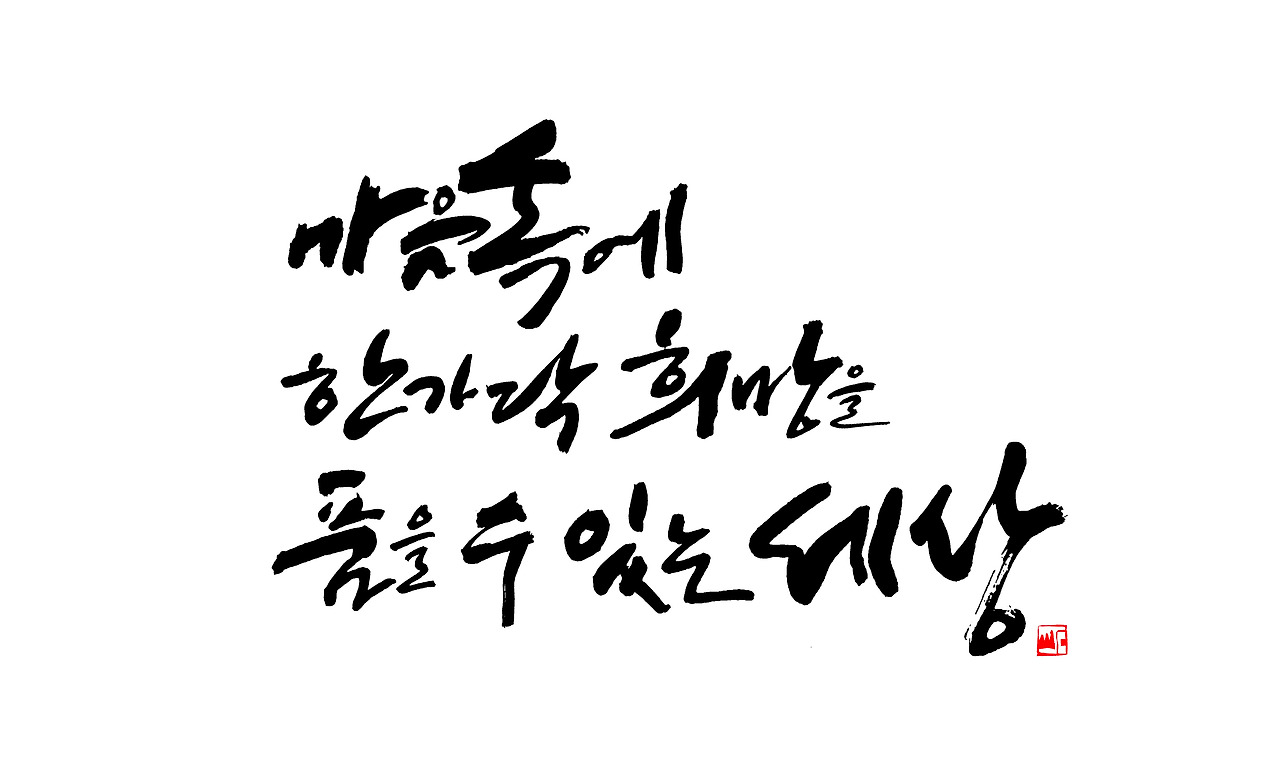 마음속에
한가닥 희망을
품을 수 있는 세상